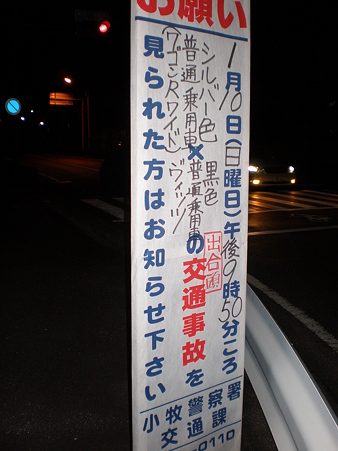 お願い
1月10日(日曜日)午後9時50分ころ
シルバー色 黒色 出合頭
普通乗用車×普通乗用車の交通事故を
(ワゴンRワイド) ヴィッツ
見られた方はお知らせ下さい
小牧警察署
交通課
-0110